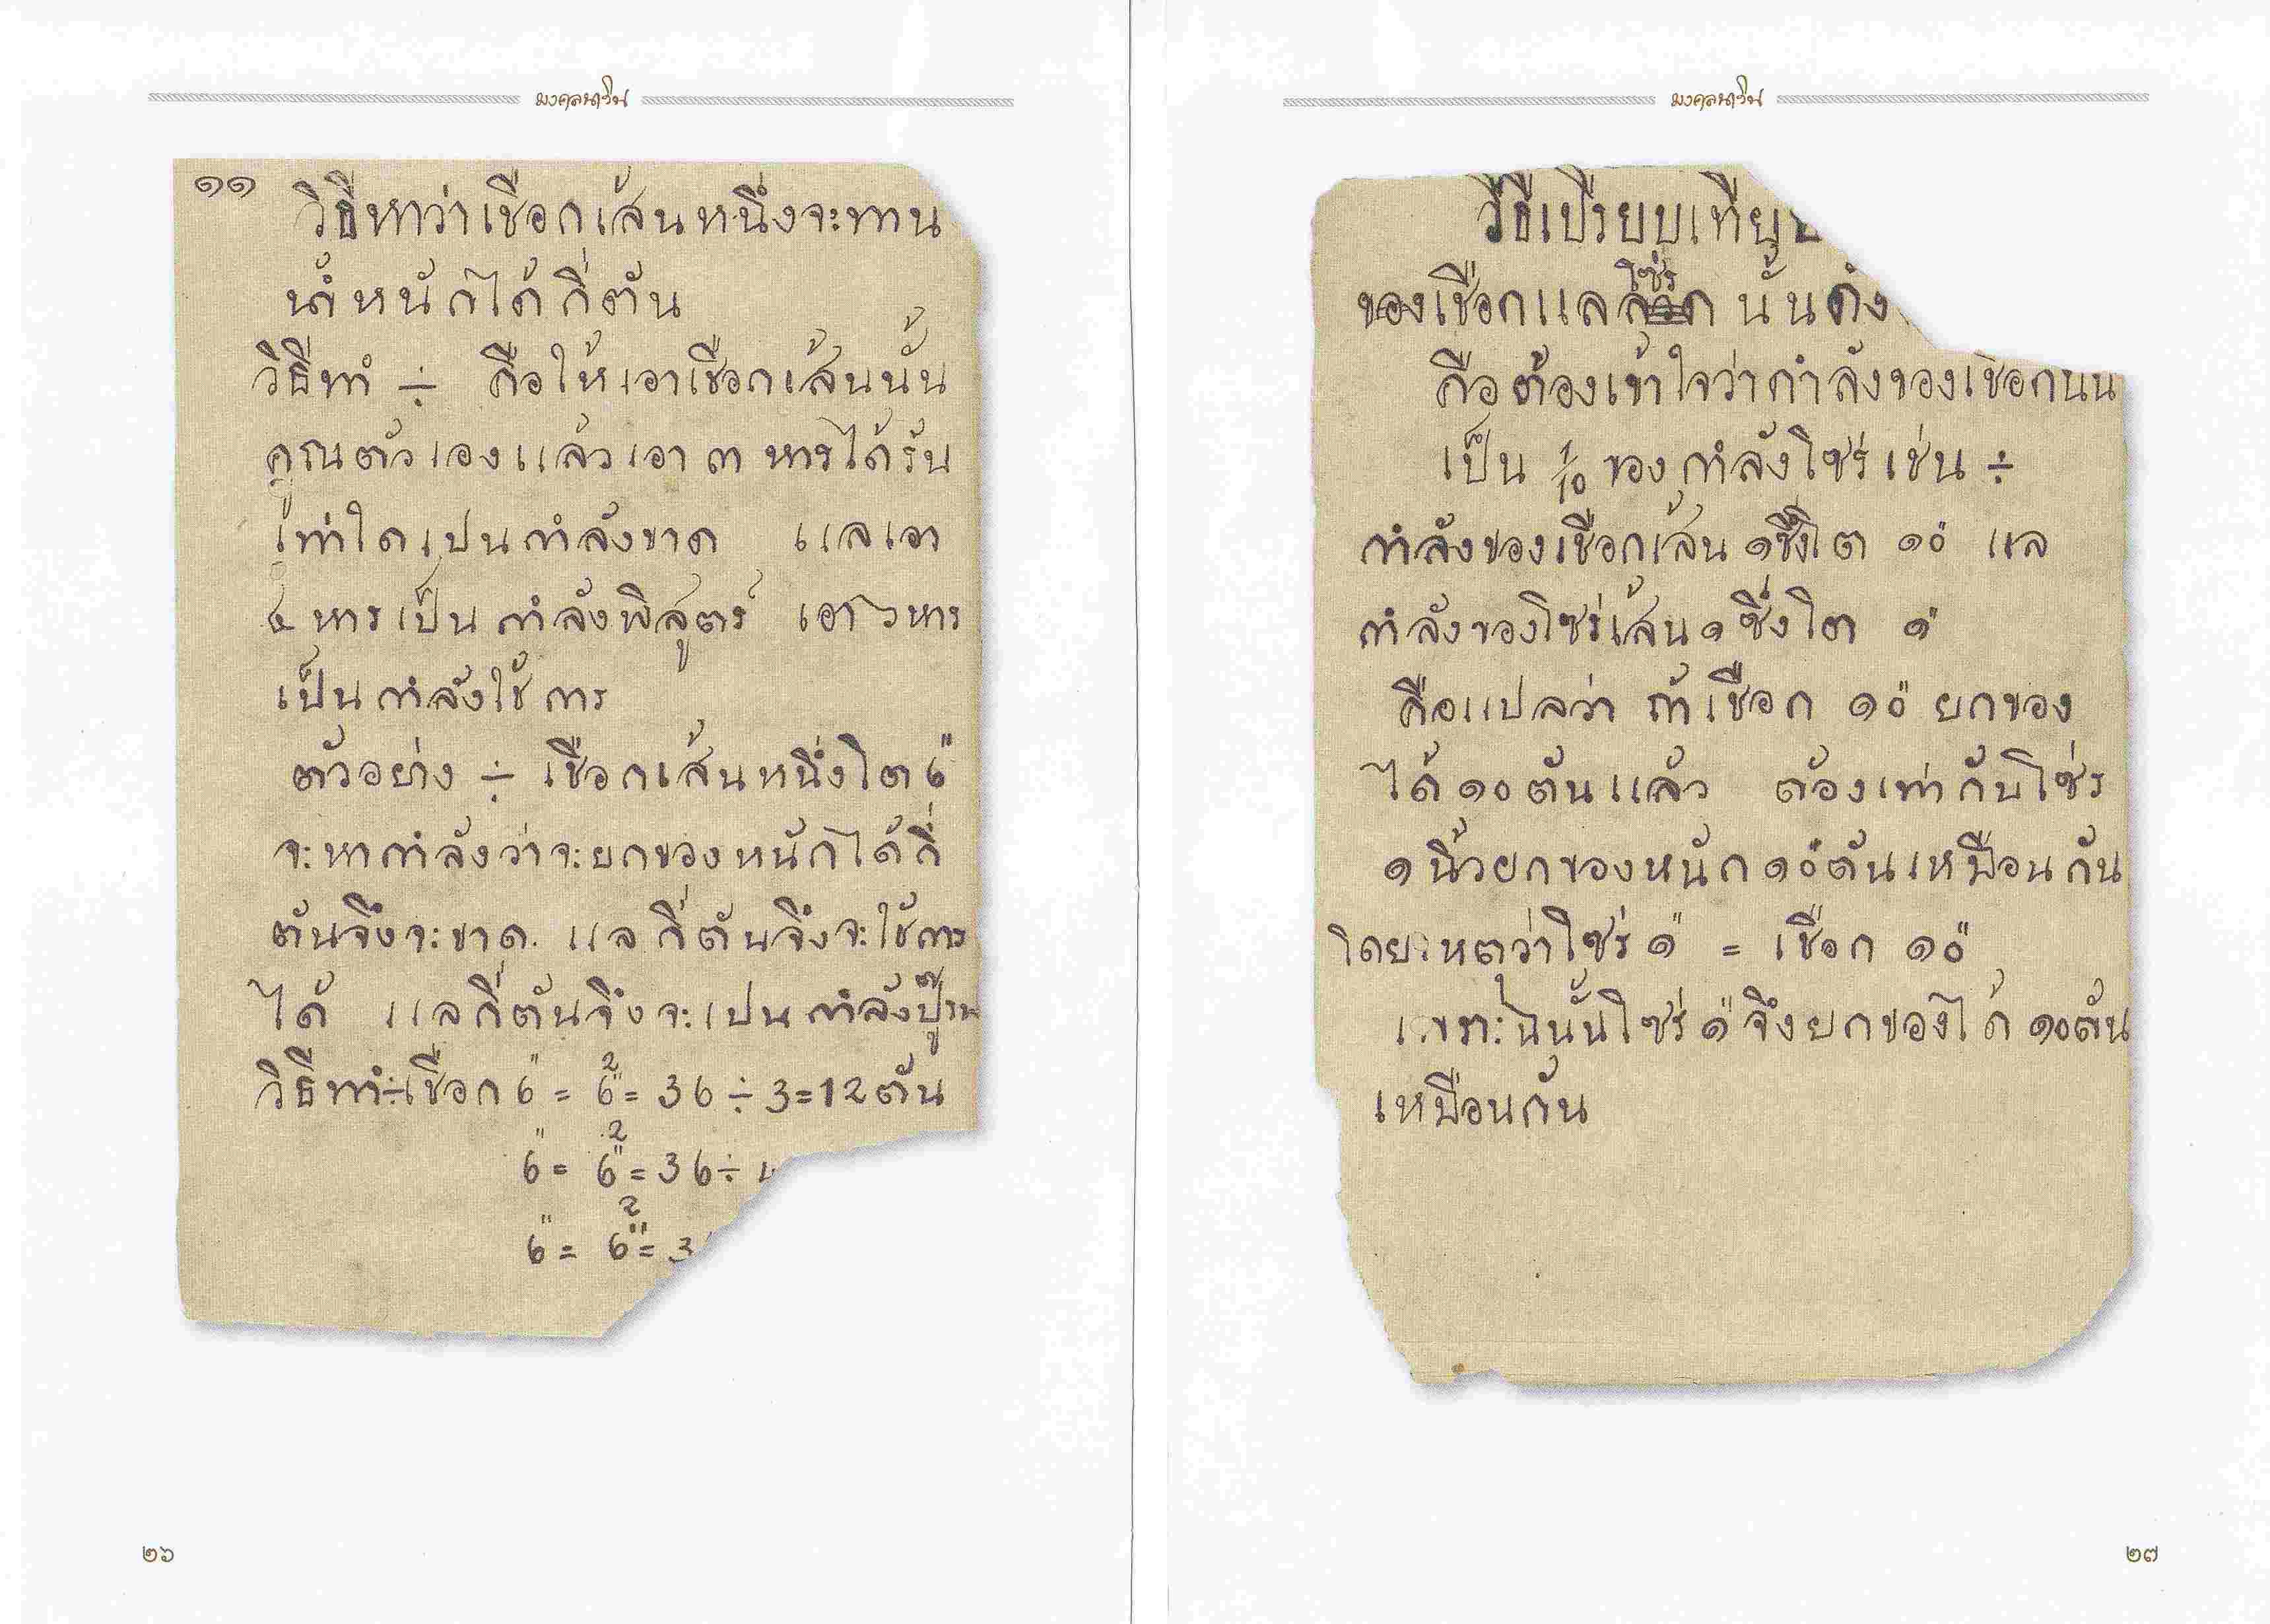 มงคลนาวิน
๑๑
วิธีหาว่าเชือกเส้นหนึ่งจะทาน
น้ำหนักได้กี่ตัน
วิธีทำ ÷ คือให้เอาเชือกเส้นนั้น
คูณตัวเองแล้วเอา ๓ หารได้ร้น
เท่าใดเปนกำลังขาด แลเอา
๔ หารเป็นกำลังพิสูตร์ เอา หาร
เป็นกำลังใช้การ
ตัวอย่าง ÷ เชือกเส้นหนึ่งโต ๖"
จะหากำลังว่าจะยกของหนักได้กี่
ตันจึงจะขาด. แลกี่ตันจึงจะใช้การ
ได้ แลกี่ตันจึงจะเปนกำลัง
วิธีทำ÷เชือก 6" = 6"² = 36 ÷ 3 = 12 ตัน
6" = 6"² = 36 ÷
6" = 6"² = 3
๒๖
มงคลนาวิน
วิธีเปรียบเทียบ
ของเชือกแล โซ่ร นั้นดัง
คือต้องเข้าใจว่ากำลังของเชือกนน
เป็น 1/10 ของกำลังโซ่ร เช่น ÷
กำลังของเชือกเส้น ๑ ซึ่งโต ๑๐" แล
กำลังของโซ่รเส้น ๑ ซึ่งโต ๑"
คือแปลว่า ถ้าเชือก ๑๐" ยกของ
ได้ ๑๐ ตันแล้ว ต้องเท่ากับโซ่ร
๑ นิ้วยกของหนัก ๑๐ ตันเหมือนกัน
โดยเหตุว่าโซ่ร ๑" = เชือก ๑๐"
เพราะฉนั้นโซ่ร ๑" จึงยกของได้ ๑๐ตัน
เหมือนกัน
๒๗